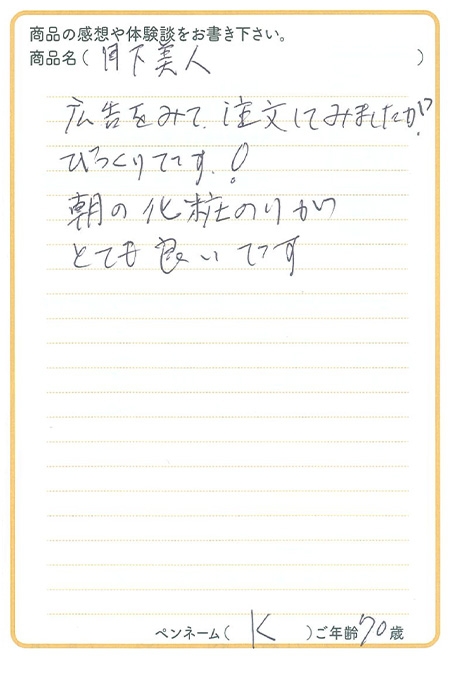 商品の感想や体験談をお書き下さい。
商品名( 月下美人 )
広告をみて、注文してみましたが!?
びっくりです。!
朝の化粧のりが
とても良いです
ペンネーム( K )ご年齢70歳